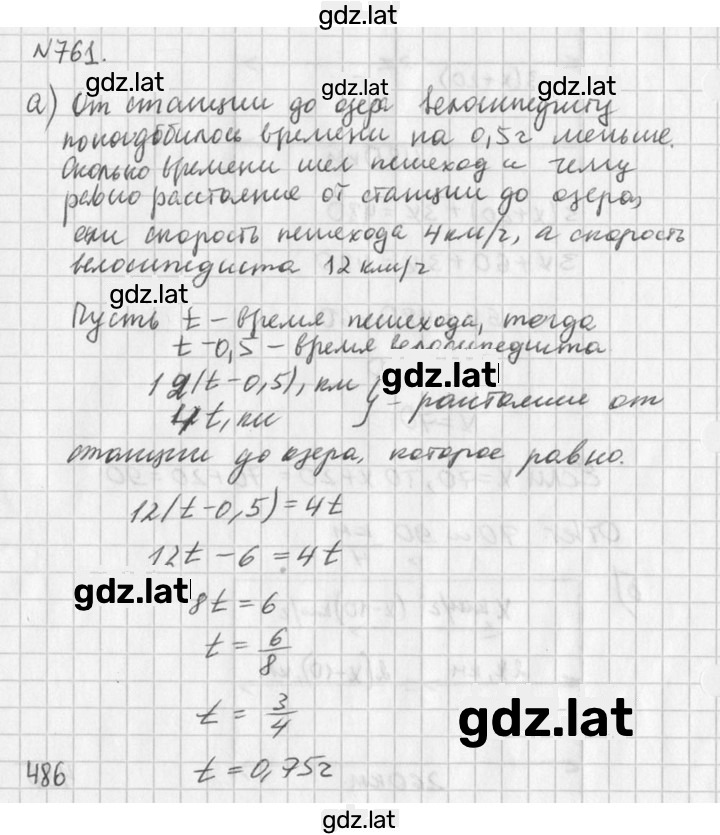 gdz.lat
N761.
gdz.lat gdz.lat
а) От станции до озера велосипедисту
понадобилось времени на 0,5ч меньше.
Сколько времени шел пешеход и чему
равно расстояние от станции до озера,
если скорость пешехода 4км/ч, а скорость
велосипедиста 12 км/ч
gdz.lat
Пусть t - время пешехода, тогда
t-0,5 - время велосипедиста
gdz.lat
12(t-0,5), км
4t, км } - расстояние от
станции до озера, которое равно.
12(t-0,5)=4t
12t-6=4t
gdz.lat
8t=6
t=6/8
t=3/4
gdz.lat
t=0,75ч
486
gdz.lat